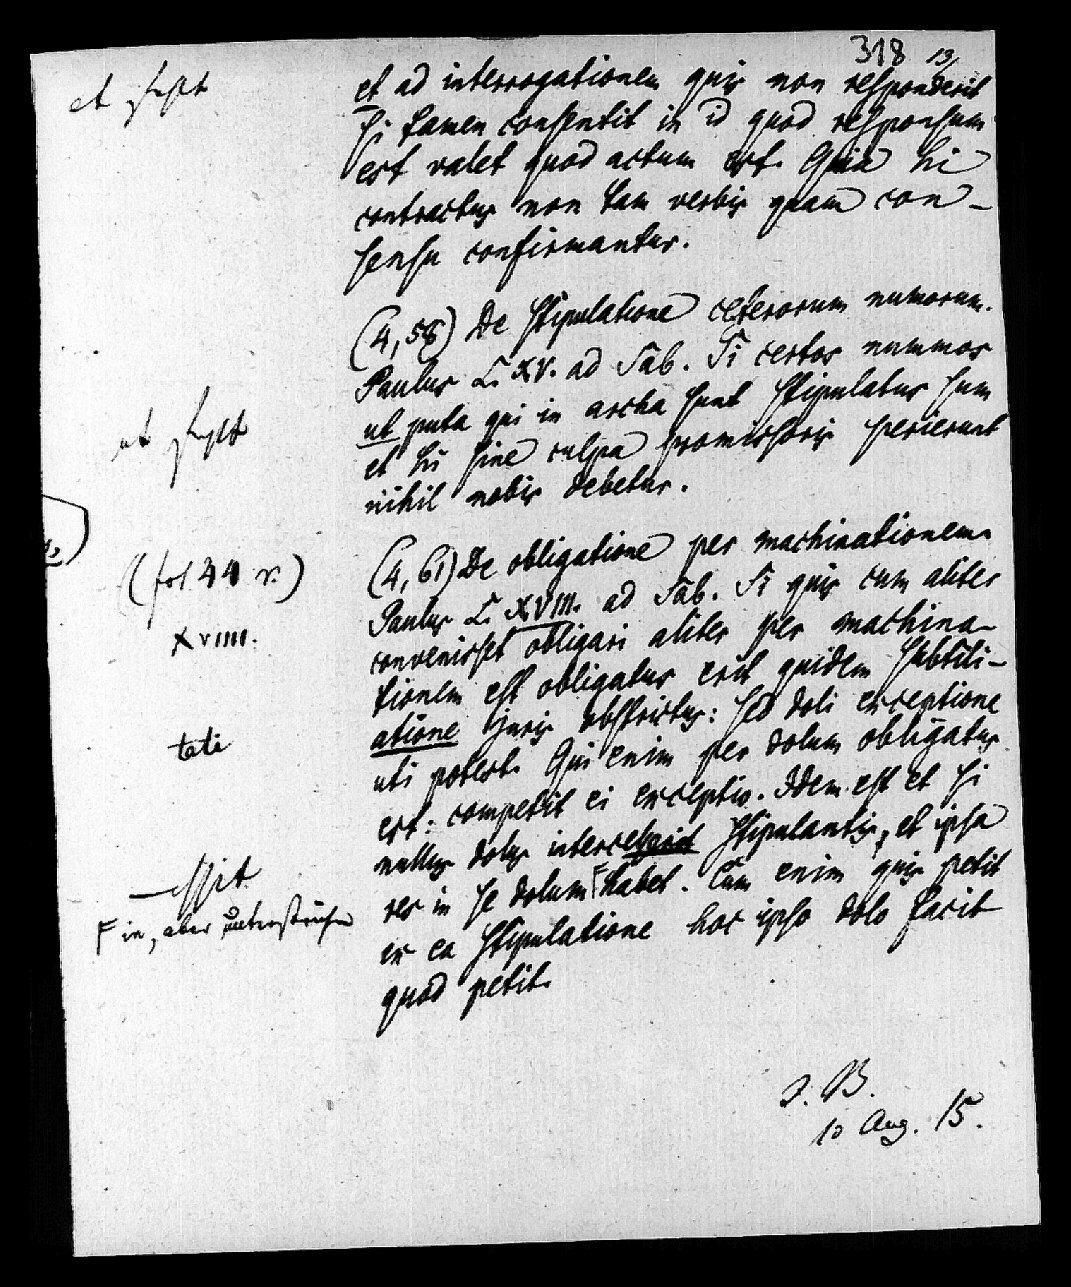 318 13,
et ad interrogationem quis non responderit
si tamen consentit in id quod responsum
est valet quod actum est. Quia hi
contractus non tam verbis quam con-
sensu confirmantur.
(4, 58) De stipulatione ceterorum numorum.
Paulus L. XV. ad Sab. Si certos nummos
ut puta qui in archa sunt stipulatus sum
et hi sine culpa promissoris perierunt
nihil nobis debetur.
(fol 44 r.)
(4, 61) De obligatione per machinationem
Paulus L. XVIII. ad Sab. Si quis cum aliter
XVIIII.
convenisset obligari aliter per machina-
tionem est obligatus erit quidem subtili-
atione juris obstrictus: sed doli exceptione
tati
uti potest. Qui enim per dolum obligatus
est: competit ei exceptio. Idem est et si
nullus dolus intercesserit stipulantis, et ipsa
-essit
res in se dolum habet. Cum enim quis petit
in, aber unterstrichen
ex ea stipulatione hoc ipso dolo facit
quod petit.
J. B.
10 Aug. 15.